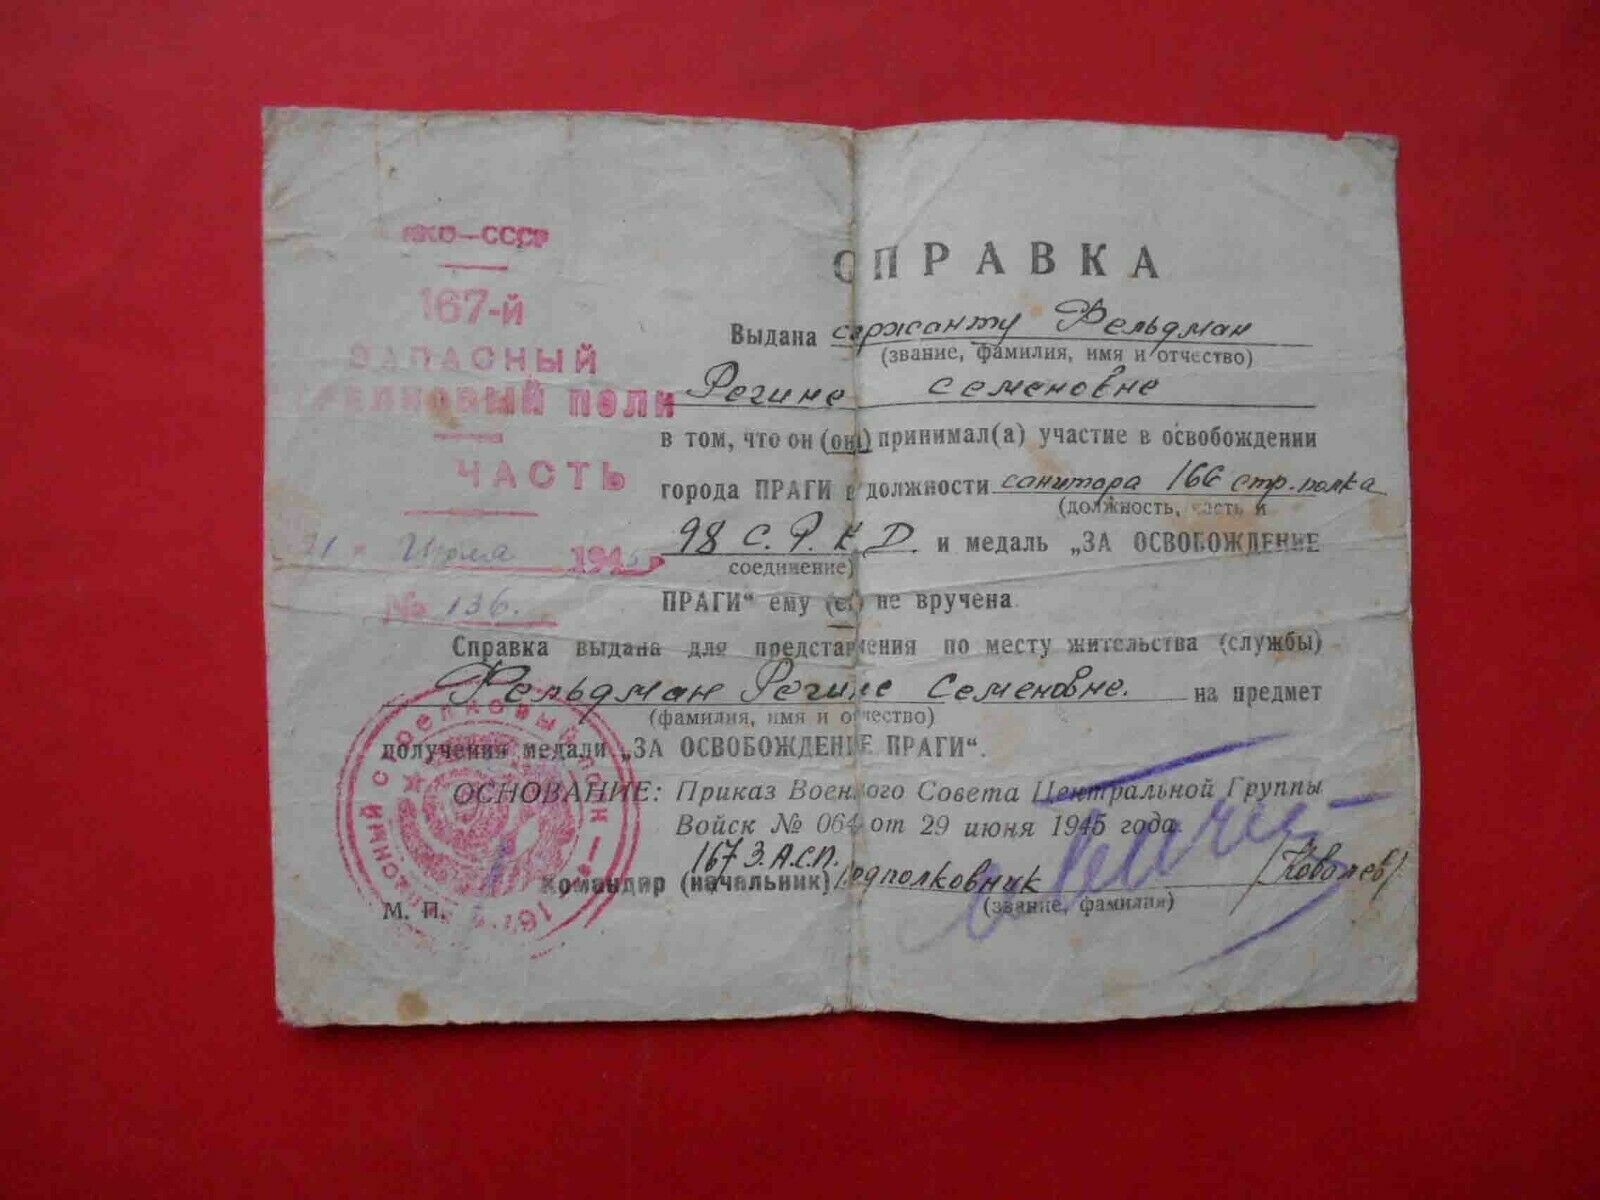 НКО—СССР
167-й
ЗАПАСНЫЙ
СТРЕЛКОВЫЙ ПОЛК
ЧАСТЬ
1945
№ 136.
СПРАВКА
Выдана сержанту Фельдман
(звание, фамилия, имя и отчество)
Регине Семеновне
в том, что он (она) принимал(а) участие в освобождении
города ПРАГИ в должности санитора 166 стр. полка
(должность, часть и
98 С. Р. К. Д. и медаль „ЗА ОСВОБОЖДЕНИЕ
соединение)
ПРАГИ“ ему (ей) не вручена.
Справка выдана для представления по месту жительства (службы)
Фельдман Регине Семеновне. на предмет
(фамилия, имя и отчество)
получения медали „ЗА ОСВОБОЖДЕНИЕ ПРАГИ“.
ОСНОВАНИЕ: Приказ Военного Совета Центральной Группы
Войск № 064 от 29 июня 1945 года.
167 З.А.С.П.
Командир (начальник) подполковник /Ковалев/
(звание, фамилия)
М. П.